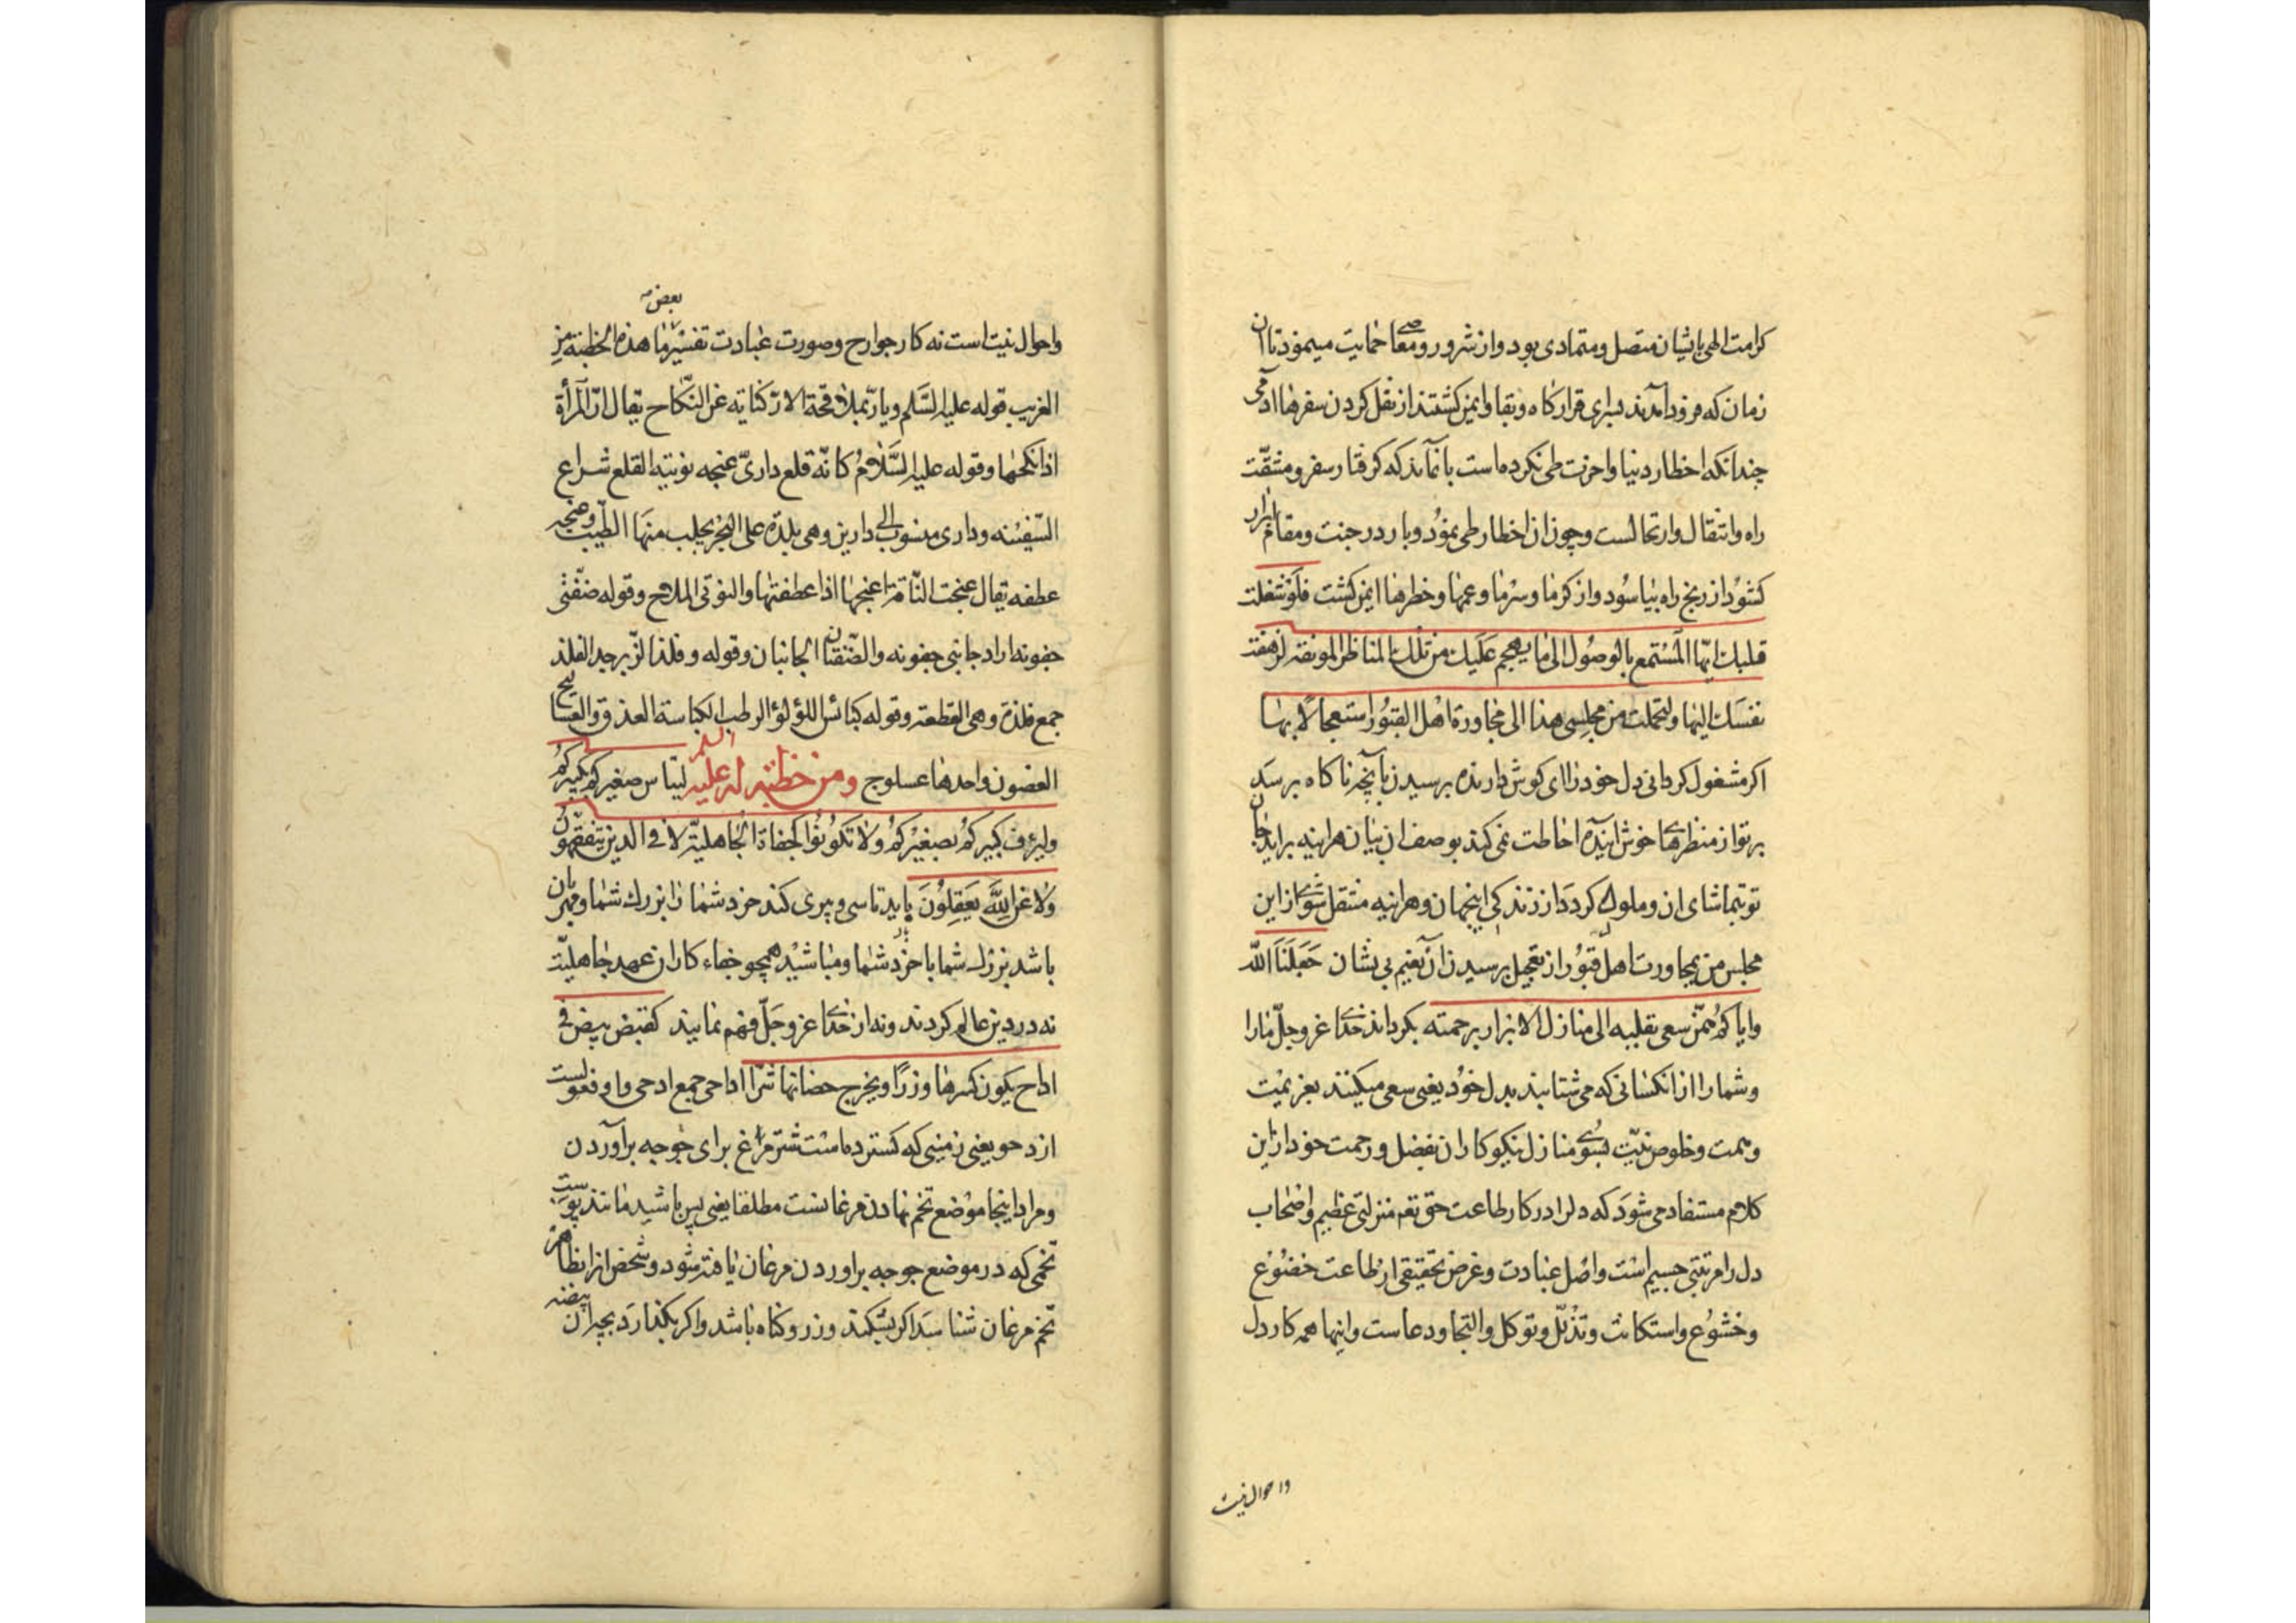 کرامت الهی بایشان متصل و متمادی بود و از شرور و معاصی حمایت میمود تا ان
زمان که فرود آمدند بسرای قرارکاه و بقا و ایمن کشتند از نقل کردن سفرها ادمی
چندانکه اخطار دنیا و اخرت طی نکرده است بانماند که کرفتار سفر و مشقّت
راه و انتقال و ارتحالست و چون ان اخطار طی نمود و بار در جنت و مقام ابرار
کشود از رنج راه بیاسود و از کرما و سرما و غمها و خطرها ایمن کشت فلو شغلت
قلبك ایّها المستمع بالوصول الی ما یهجم علیك من تلك المناظر المونقه لزهقت
نفسك الیها و لتحملت من مجلسی هذا الی مجاورة اهل القبور استعجالا بها
اکر مشغول کردانی دل خود را ای کوش دارنده برسیدن بآنچه ناکاه برسد
بر تو از منظرهای خوش اینده احاطت نمی کند بوصف ان بیان هراینه براید جان
تو بتماشای ان و ملول کردد از زندکی اینجهان و هراینه منتقل شوی از این
مجلس من بمجاورت اهل قبور از تعجیل برسیدن آن نعیم بی نشان جعلنا الله
و ایاکم ممّن سعی بقلبه الی منازل الابرار برحمته بکرداند خدای عز و جلّ مارا
و شما را از انکسانی که می شتابند بدل خود یعنی سعی میکنند بعزیمت
و همت و خلوص نیّت بسوی منازل نیکوکاران بفضل و رحمت خود از این
کلام مستفاد می شود که دل را در کار طاعت حق تع منزلتی عظیم و اصحاب
دل را مرتبتی جسیم است و اصل عبادت و غرض حقیقی از طاعت خضوع
و خشوع و استکانت و تذلّل و توکل و التجا و دعاست و اینها همه کار دل
و احوال نیت
بعض
و احوال نیت است نه کار جوارح و صورت عبادت تفسیر ما هذه الخطبة من
الغریب قوله علیه السّلم و یارّ بملاقحة الارّ کنایة عن النّکاح یقال ارّ المرأة
اذا نکحها و قوله علیه السّلام کانّه قلع داریّ عنجه نوتیه القلع شراع
السّفینه و داری منسوب الی دارین و هی بلدة علی البحر یجلب منها الطّیب و عنجه
عطفه یقال عنجت النّاقة اعنجها اذا عطفتها و النوتی الملاح و قوله ضفّتی
جفونه اراد جانبی جفونه و الضّفتان الجانبان و قوله و فلذ الزّبرجد الفلذ
جمع فلذة و هی القطعة و قوله کبائس اللؤلؤ الرطب الکباسة العذق و العسالیج
الغصون واحدها عسلوج و من خطبة له علیه السلم لیتاس صغیرکم بکبیرکم
و لیرؤف کبیرکم بصغیرکم و لا تکونوا کجفاة الجاهلیّة لا فی الدین تتفقهون
و لا عن الله یعقلون باید تاسی و پیروی کند خرد شما را بزرك شما و مهربان
باشد بزرك شما با خرد شما و مباشید همچو جفاء کاران عهد جاهلیّت
نه در دین عالم کردند و نه از خدای عز و جلّ فهم نمایند کقیض بیض فی
اداح یکون کسرها وزرًا و یخرج حضانها شرّا اداحی جمع ادحی و افعولست
از دحو یعنی زمینی که کسترده است شتر مرغ برای جوجه برآوردن
و مراد اینجا موضع تخم نهادن مرغانست مطلقا یعنی پس باشید مانند پوست
تخمی که در موضع جوجه براوردن مرغان یافته شود و شخص انرا بظاهر
تخم مرغان شناسد اکر بشکند وزر و کناه باشد و اکر بکذارد بچه ان بیضه